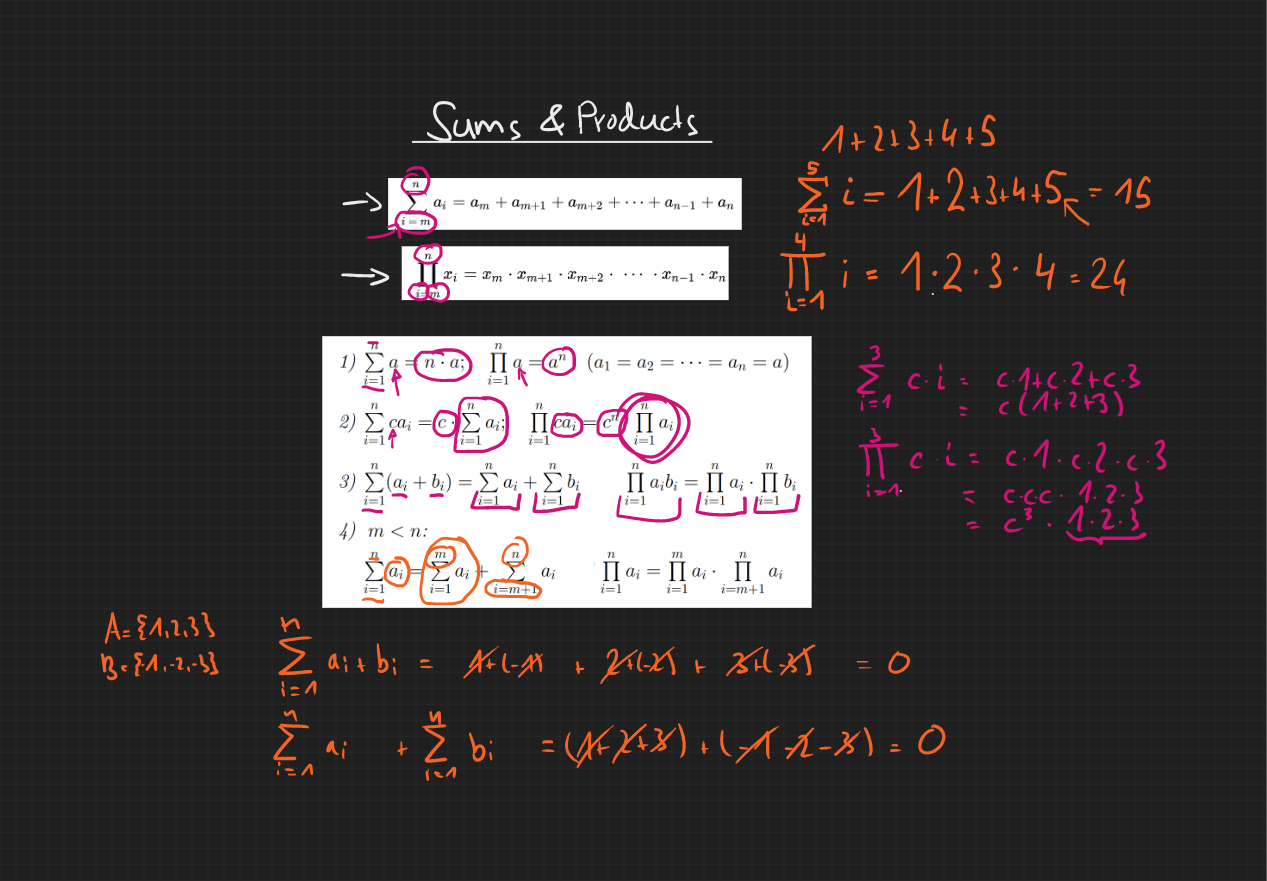 Sums & Products
∑_{i=m}^{n} a_i = a_m + a_{m+1} + a_{m+2} + ··· + a_{n-1} + a_n
∏_{i=m}^{n} x_i = x_m · x_{m+1} · x_{m+2} · ··· · x_{n-1} · x_n
1+2+3+4+5
∑_{i=1}^{5} i = 1+2+3+4+5 = 15
∏_{i=1}^{4} i = 1·2·3·4 = 24
1) ∑_{i=1}^{n} a = n · a; ∏_{i=1}^{n} a = a^n (a_1 = a_2 = ··· = a_n = a)
2) ∑_{i=1}^{n} ca_i = c · ∑_{i=1}^{n} a_i; ∏_{i=1}^{n} ca_i = c^n ∏_{i=1}^{n} a_i
3) ∑_{i=1}^{n} (a_i + b_i) = ∑_{i=1}^{n} a_i + ∑_{i=1}^{n} b_i ∏_{i=1}^{n} a_i b_i = ∏_{i=1}^{n} a_i · ∏_{i=1}^{n} b_i
4) m < n:
∑_{i=1}^{n} a_i = ∑_{i=1}^{m} a_i + ∑_{i=m+1}^{n} a_i ∏_{i=1}^{n} a_i = ∏_{i=1}^{m} a_i · ∏_{i=m+1}^{n} a_i
∑_{i=1}^{3} c·i = c·1+c·2+c·3
= c(1+2+3)
∏_{i=1}^{3} c·i = c·1·c·2·c·3
= c·c·c · 1·2·3
= c^3 · 1·2·3
A={1,2,3}
B={-1,-2,-3}
∑_{i=1}^{n} a_i + b_i = 1+(-1) + 2+(-2) + 3+(-3) = 0
∑_{i=1}^{n} a_i + ∑_{i=1}^{n} b_i = (1+2+3) + (-1-2-3) = 0